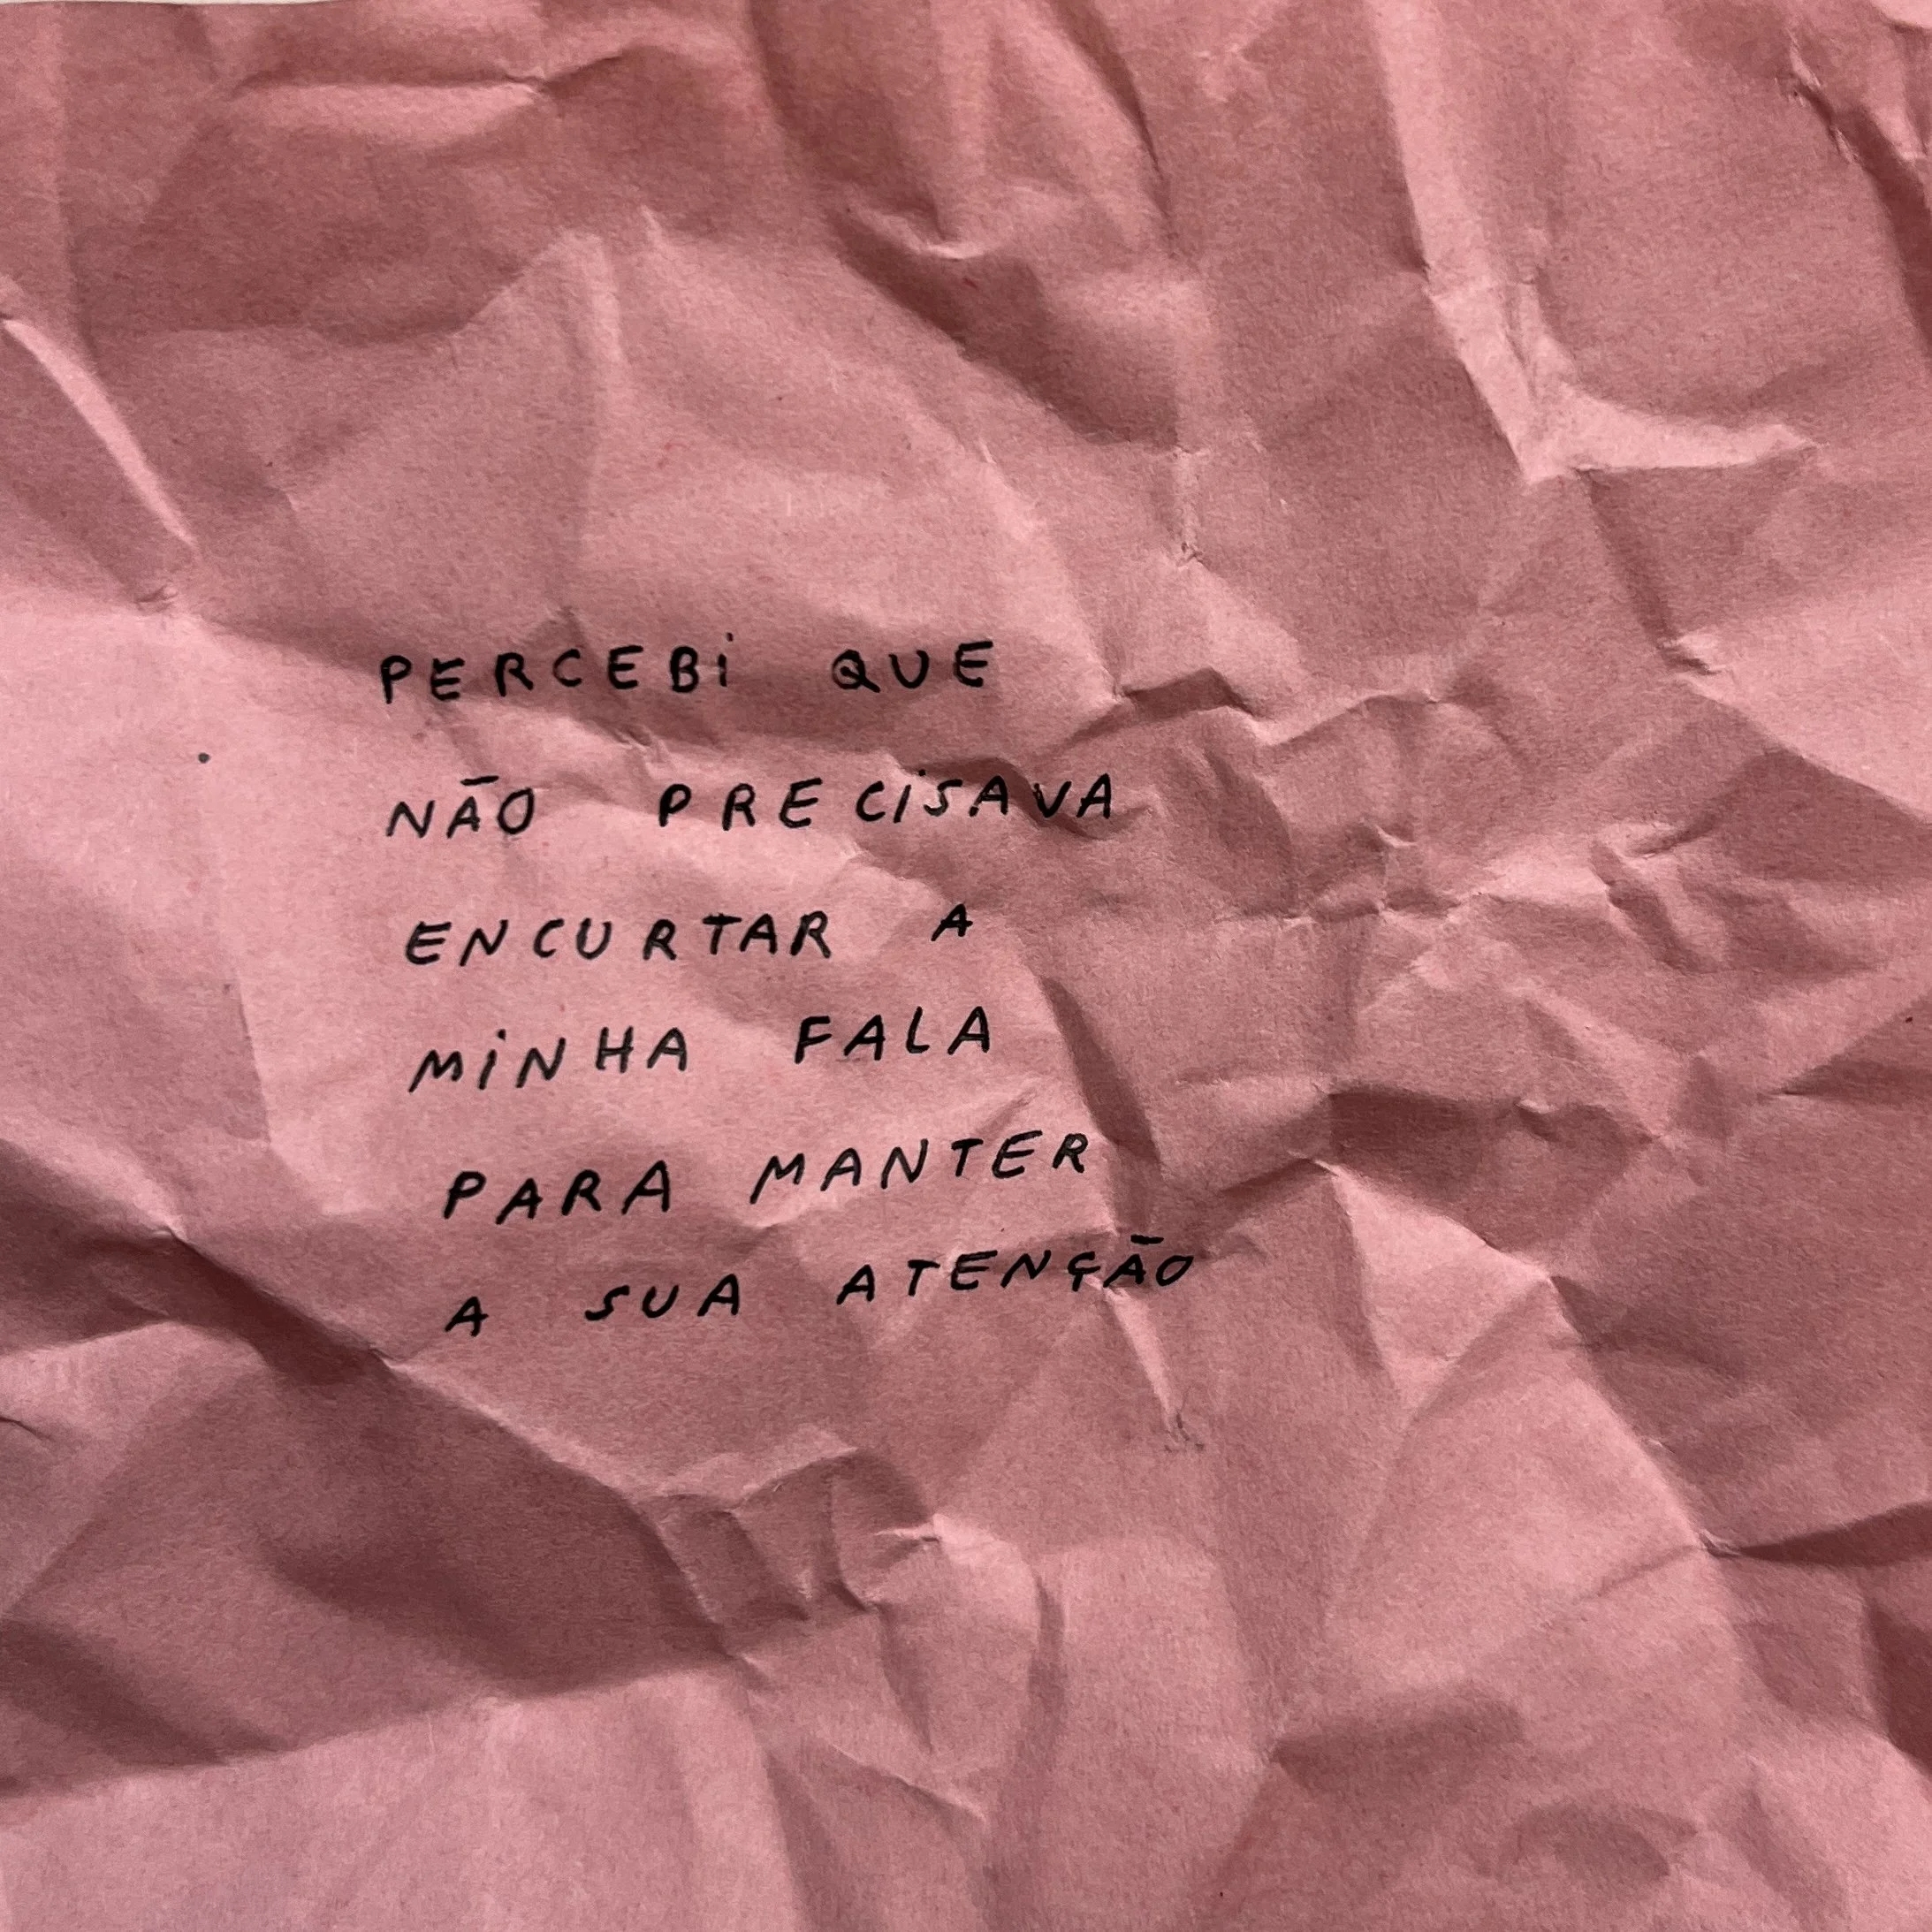 PERCEBi QUE
NÃO PRECiSAVA
ENCURTAR A
MiNHA FALA
PARA MANTER
A SUA ATENÇÃO